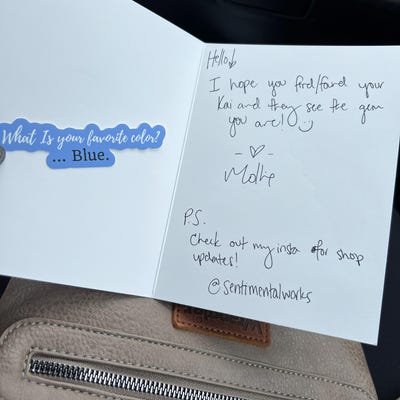 What Is your favorite color?
... Blue.
Hello!
I hope you find/found your
Kai and they see the gem
you are! :)
- ♡ -
Mollie
P.S.
Check out my insta for shop
updates!
@sentimentalworks